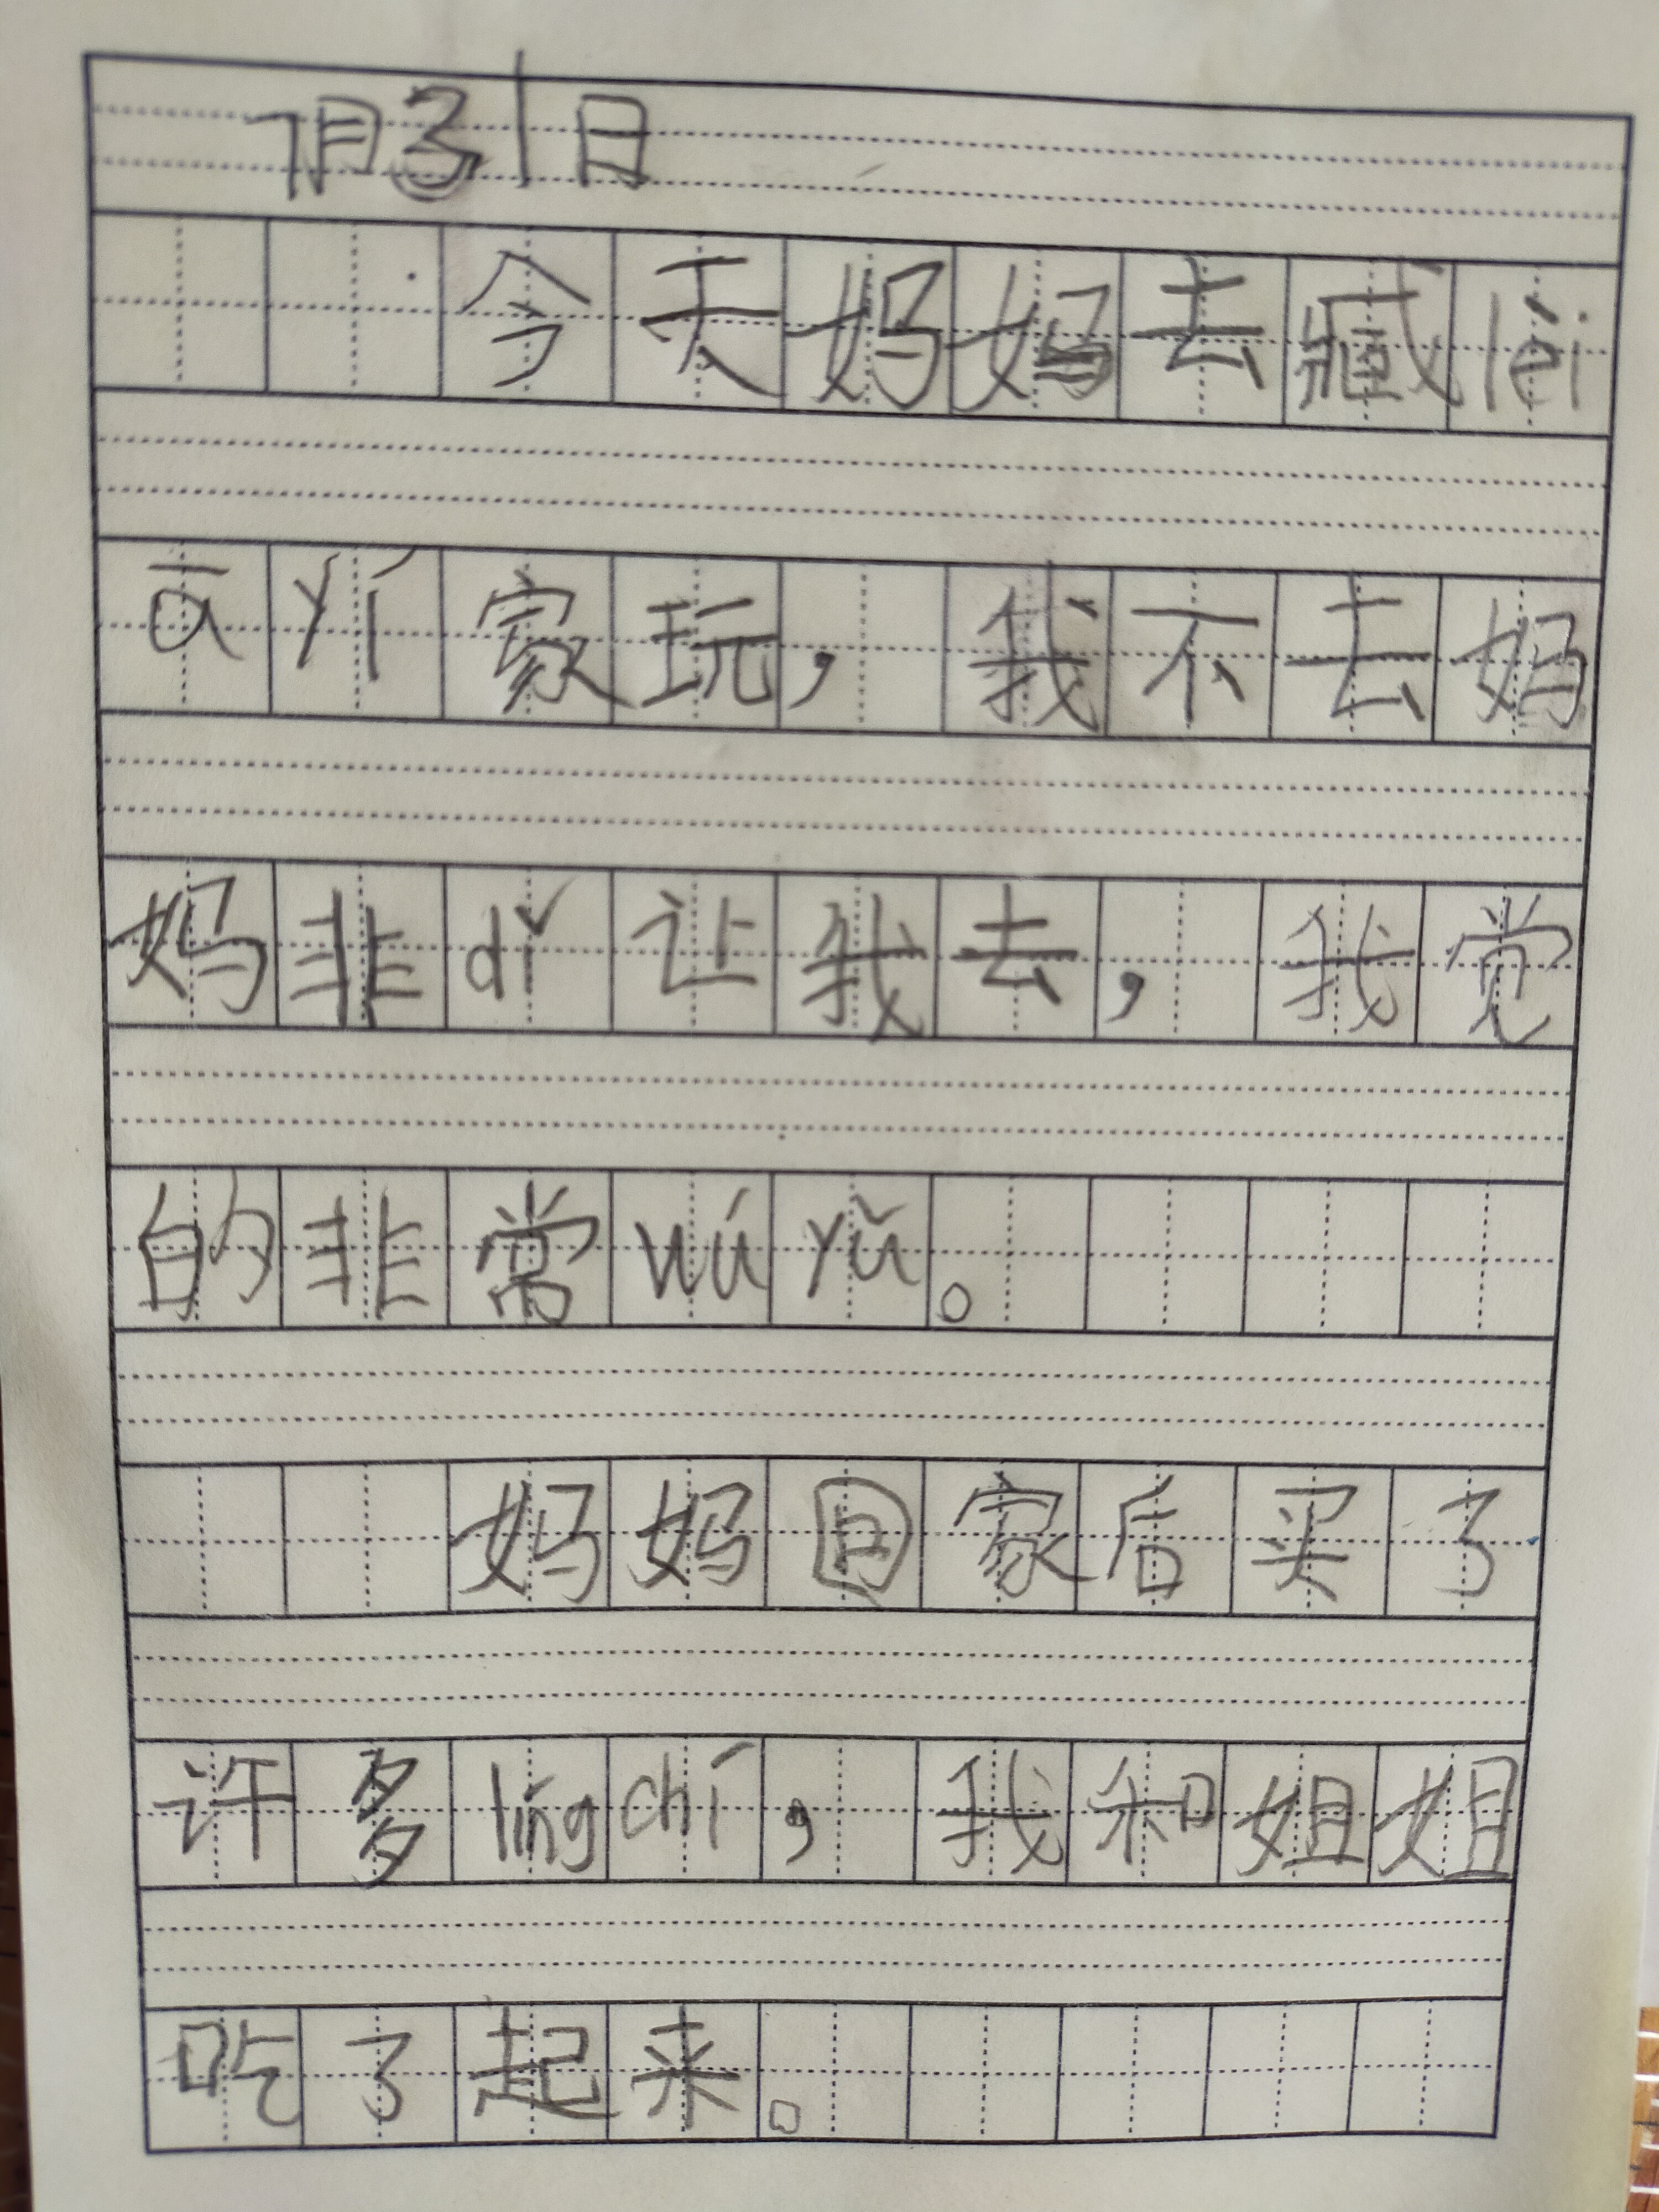 7月31日
今天妈妈去臧lèi
āyí家玩，我不去妈
妈非dǐ让我去，我觉
的非常wúyǔ。
妈妈回家后买了
许多língchí，我和姐姐
吃了起来。